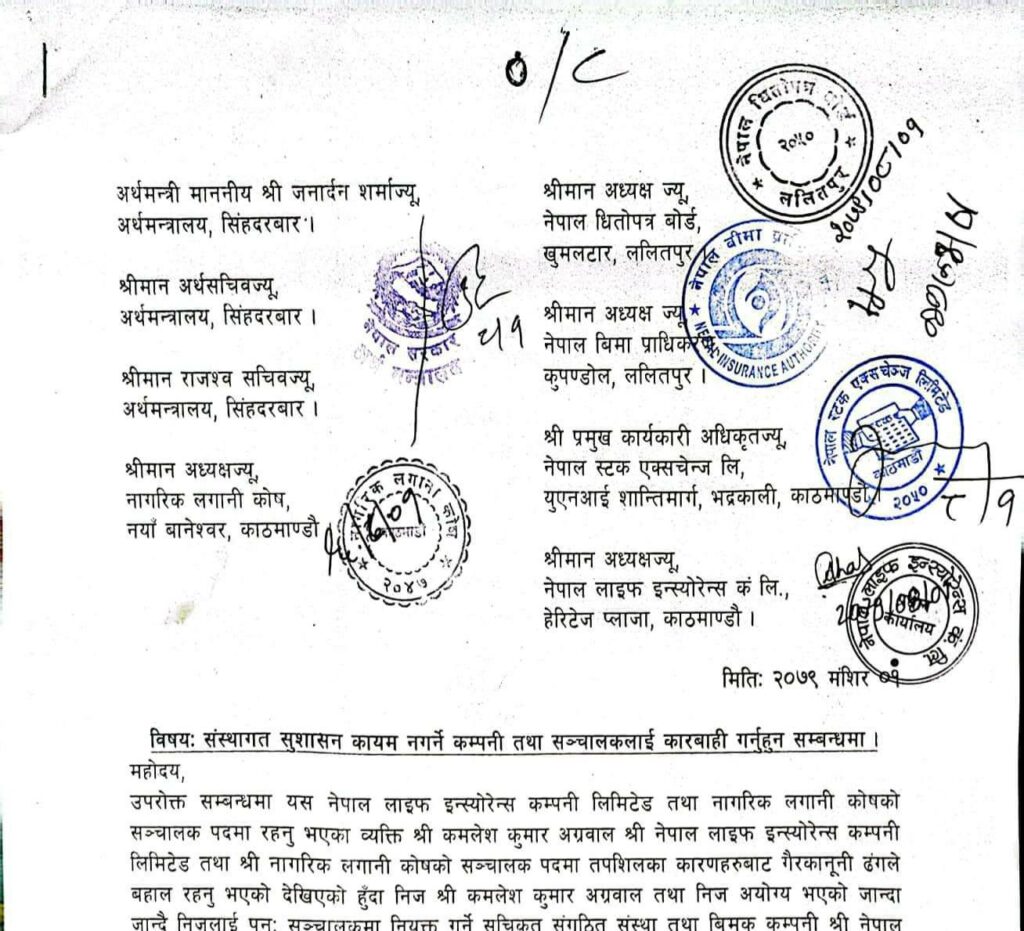 O/C
अर्थमन्त्री माननीय श्री जनार्दन शर्माज्यू,
अर्थमन्त्रालय, सिंहदरबार ।
श्रीमान अर्थसचिवज्यू,
अर्थमन्त्रालय, सिंहदरबार ।
श्रीमान राजश्व सचिवज्यू,
अर्थमन्त्रालय, सिंहदरबार ।
श्रीमान अध्यक्षज्यू,
नागरिक लगानी कोष,
नयाँ बानेश्वर, काठमाण्डौ
नेपाल सरकार
नागरिक लगानी कोष
काठमाडौं
२०४७
श्रीमान अध्यक्ष ज्यू,
नेपाल धितोपत्र बोर्ड,
खुमलटार, ललितपुर
श्रीमान अध्यक्ष ज्यू
नेपाल बिमा प्राधिकरण
कुपण्डोल, ललितपुर ।
श्री प्रमुख कार्यकारी अधिकृतज्यू,
नेपाल स्टक एक्सचेन्ज लि,
युएनआई शान्तिमार्ग, भद्रकाली, काठमाण्डौ ।
श्रीमान अध्यक्षज्यू,
नेपाल लाइफ इन्स्योरेन्स कं लि.,
हेरिटेज प्लाजा, काठमाण्डौ ।
नेपाल धितोपत्र बोर्ड
२०५०
ललितपुर
२०७९/०८/०१
नेपाल बीमा प्रा
NEPAL INSURANCE AUTHORITY
नेपाल स्टक एक्सचेञ्ज लिमिटेड
काठमाडौं
२०५०
नेपाल लाइफ इन्स्योरेन्स कं. लि.
कार्यालय
मिति: २०७९ मंशिर ०१
विषय: संस्थागत सुशासन कायम नगर्ने कम्पनी तथा सञ्चालकलाई कारबाही गर्नुहुन सम्बन्धमा ।
महोदय,
उपरोक्त सम्बन्धमा यस नेपाल लाइफ इन्स्योरेन्स कम्पनी लिमिटेड तथा नागरिक लगानी कोषको
सञ्चालक पदमा रहनु भएका व्यक्ति श्री कमलेश कुमार अग्रवाल श्री नेपाल लाइफ इन्स्योरेन्स कम्पनी
लिमिटेड तथा श्री नागरिक लगानी कोषको सञ्चालक पदमा तपशिलका कारणहरुबाट गैरकानूनी ढंगले
बहाल रहनु भएको देखिएको हुँदा निज श्री कमलेश कुमार अग्रवाल तथा निज अयोग्य भएको जान्दा
जान्दै निजलाई पुन: सञ्चालकमा नियुक्त गर्ने सूचिकृत संगठित संस्था तथा बिमक कम्पनी श्री नेपाल